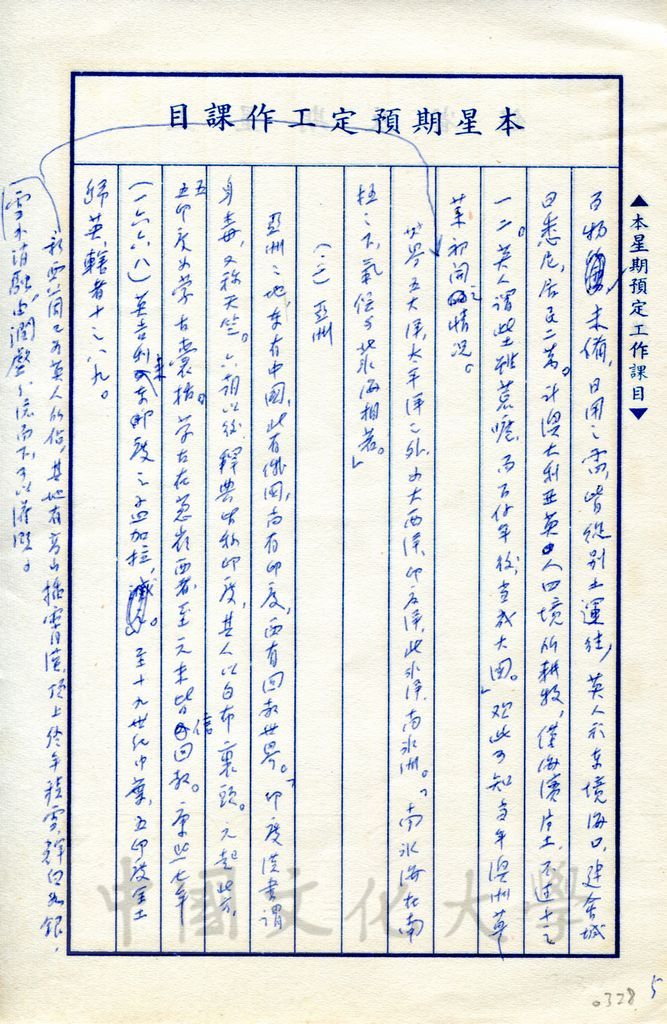 本星期預定工作課目
▲本星期預定工作課目▼
百物未備,日用之需,皆從別土運往,英人於東境海口,建會城
曰悉尼,居民二萬。計澳大利亞英人四境所耕牧,僅海濱片土,不過十之
一二。英人謂此土雖荒曠,而百餘年後,當成大國。」觀此可知當年澳洲草
萊初開之情況。
世界五大洋,太平洋之外,為大西洋,印度洋,北冰洋,南冰洲。「南冰海在南
極之下,氣候與北冰海相若。」
(二)亞洲
亞洲之地東有中國,北有俄國,南有印度,西有回教世界。「印度漢書謂
身毒,又稱天竺。六朝以後,釋典皆稱印度,其人以白布裹頭。元起北方,
五印度為蒙古囊括。蒙古在蔥嶺西者,至元末皆信回教。康熙七年
(一六六八)英吉利來東印度之孟加拉,至十九世紀中葉,五印度全土
歸英轄者十之八九。
新西蘭已為英人所佔,其地有高山插霄漢,頂上終年積雪,輝白如銀,
雪水消融,由澗壑分流而下,可以灌溉。
中國文化大學
0328
5